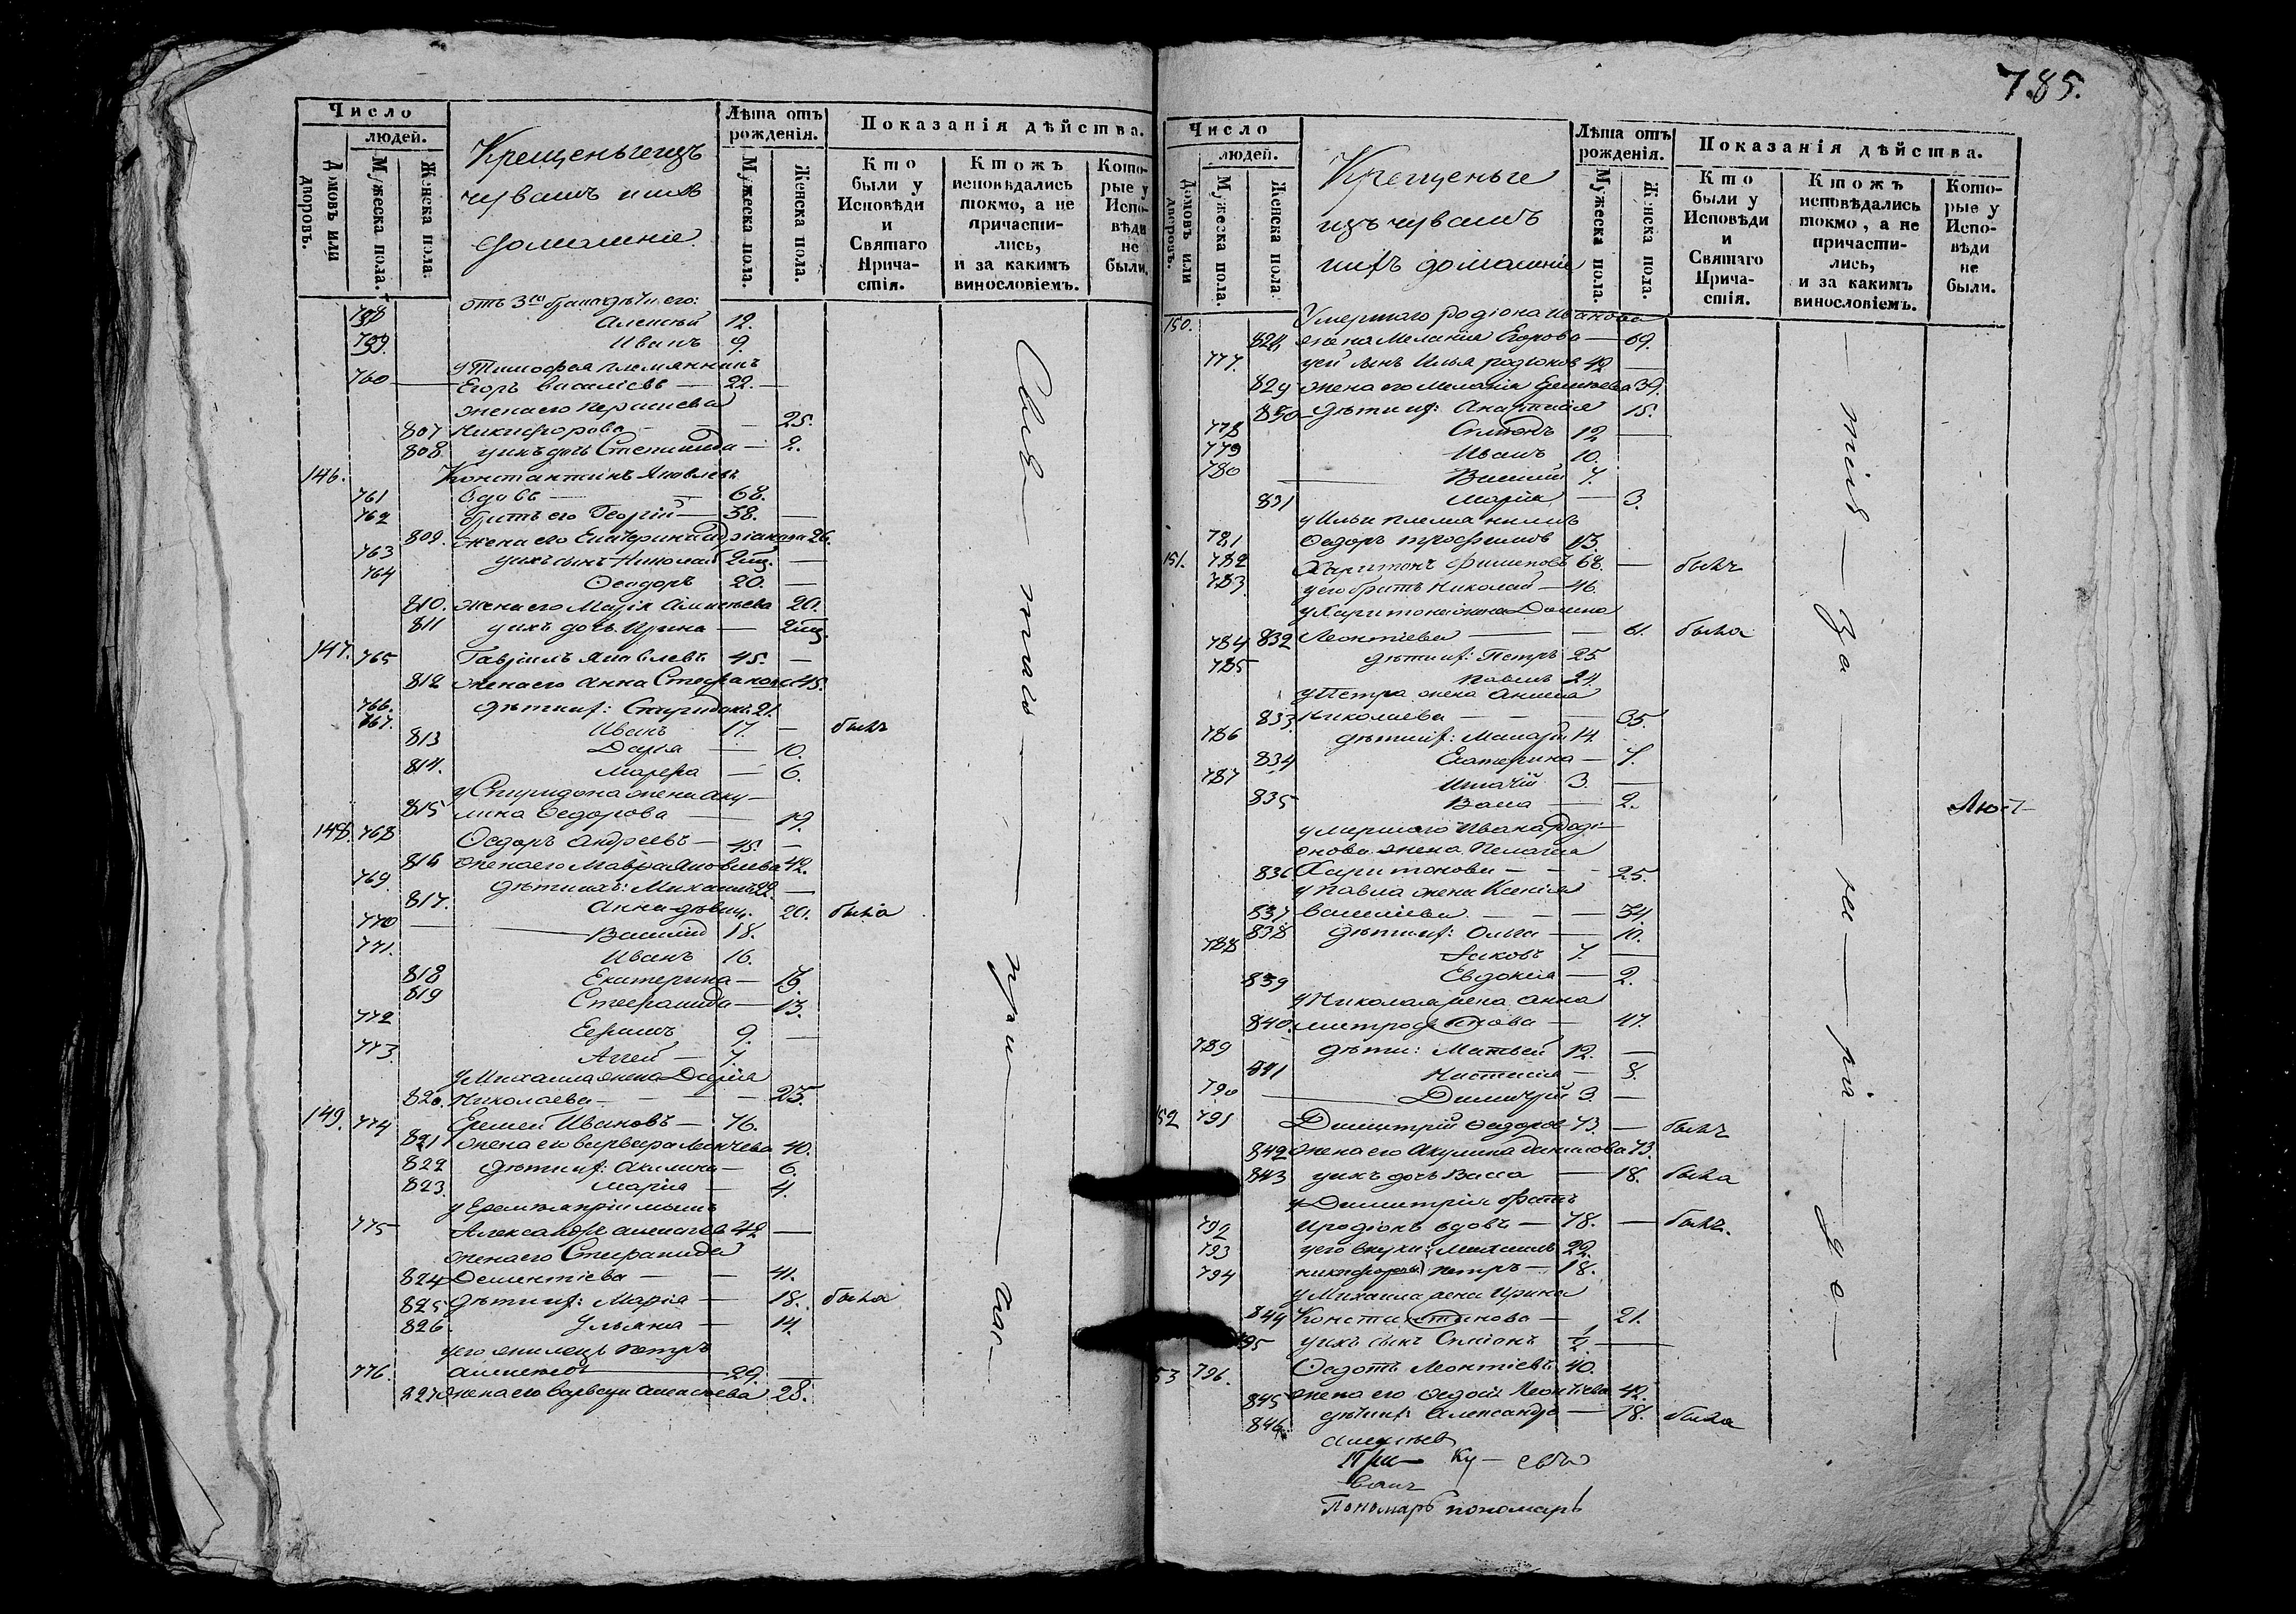 785.
Число
людей.
Домовъ или дворовъ.
Мужеска пола.
Женска пола.
Крещеные изъ
чувашъ и ихъ
домашніе.
Лѣта отъ рожденія.
Мужеска пола.
Женска пола.
Показанія дѣйства.
Кто были у Исповѣди и Святаго Прича-стія.
Ктожъ исповѣдались токмо, а не причасти-лись, и за какимъ винословіемъ.
Кото-рые у Испо-вѣди не были.
отъ 3го брака дѣти его:
758 Алексѣй 12.
759. Иванъ 9.
у Тимофея племянникъ
760 Егоръ Васильевъ — 22. —
жена его
807 Никифорова — — 25.
808. у ихъ дочь Степанида — 2.
146. Константинъ Яковлевъ
761 вдовъ — 68.
762 братъ его Георгій — 38. —
809. жена его Екатерина 26.
763 у ихъ сынъ Николай 2 —
764 Ѳеодоръ 20. —
810. жена его Марія Алексѣева 20.
811 у ихъ дочь Ирина — 2
147. 765 Гавріилъ Яковлевъ 45. —
812 жена его Анна Стефанова 45.
766. дѣти ихъ: Спиридонъ 21.
767. Иванъ 17. — былъ
813 Дарія — 10.
814. Марфа — 6.
у Спиридона жена Аку-
815 лина Ѳедорова — 19.
148. 768 Ѳедоръ Андреевъ — 45. —
816 жена его Мавра Яковлева 42.
769. дѣти ихъ: Михаилъ 22. —
817. Анна дѣвиц. 20. была
770 — Василій 18.
771. Иванъ 16.
818 Екатерина —
819 Стефанида — 13.
772 Ефимъ 9. —
773. Аггей — 7.
у Михаила жена Дарія
820. Николаева — — — 25.
149. 774 Еремей Ивановъ — 76.
821 жена его Варвара 40.
822 дѣти их: Акилина — 6.
823. Марія — 4.
у Еремея пріимышъ
775 Александръ Алексѣевъ 42 —
жена его Стефанида
824 Дементіева — — 41.
825 дѣти их: Марія — 18. была
826. Ульяна — 14.
у его жилецъ Петръ
776. Алексѣевъ — 29. —
827 жена его Варвара Алексѣева 28.
Число
людей.
Домовъ или дворовъ.
Мужеска пола.
Женска пола.
Крещеные
изъ чувашъ
ихъ домашніе
Лѣта отъ рожденія.
Мужеска пола.
Женска пола.
Показанія дѣйства.
Кто были у Исповѣди и Святаго Прича-стія.
Ктожъ исповѣдались токмо, а не причасти-лись, и за какимъ винословіемъ.
Кото-рые у Испо-вѣди не были.
150. Умершаго Родіона Иванова
828 жена Меланія Егорова — 69.
777. у ей сынъ Илья Родіоновъ 42 —
829 жена его Меланія 39.
830 дѣти их: 15.
778 Симеонъ 12 —
779 Иванъ 10.
780 — Василій 7.
831 Марія — 3.
у Ильи племянникъ
781 Ѳедоръ Трофимовъ 13.
151. 782 Харитонъ 68. — былъ
783 у его братъ Николай — 46.
у Харитона жена Домна
832 Леонтіева — — 61. была
784 дѣти их: Петръ 25.
785 Павелъ 24.
у Петра жена
833. Николаева — — — 35.
786 дѣти их: Макарій 14.
834 Екатерина — 7.
787 Игнатій 3. —
835 Васса — 2.
умершаго Ивана Роді-
онова жена Пелагія
836 Харитонова — — 25.
у Павла жена Ксенія
837 Васильева — — — 34.
838 дѣти их: Ольга — 10.
788 Іаковъ 7. —
839 Евдокія — 2.
у Николая жена Анна
840. Митрофанова — 47.
789 дѣти: Матвей 12. —
841 Настасія — 8.
790 — Димитрій 3. —
152 791 Димитрій Ѳедоровъ 73. — былъ
842 жена его Акулина Данилова 73.
843 у ихъ дочь Васса — 18. была
у Димитрія братъ
792 Иродіонъ вдовъ — 78. — былъ.
793 у его внуки: Михаилъ 22.
794 Никифоровы Петръ — 18.
у Михаила жена Ирина
844 Константинова — 21.
795 у ихъ сынъ Симіонъ 1/2 —
153 796. Ѳедотъ Леонтіевъ 40.
845 жена его Леонтіева 42.
846. дѣти их: Александра — 18. была
Пономарь пономарь